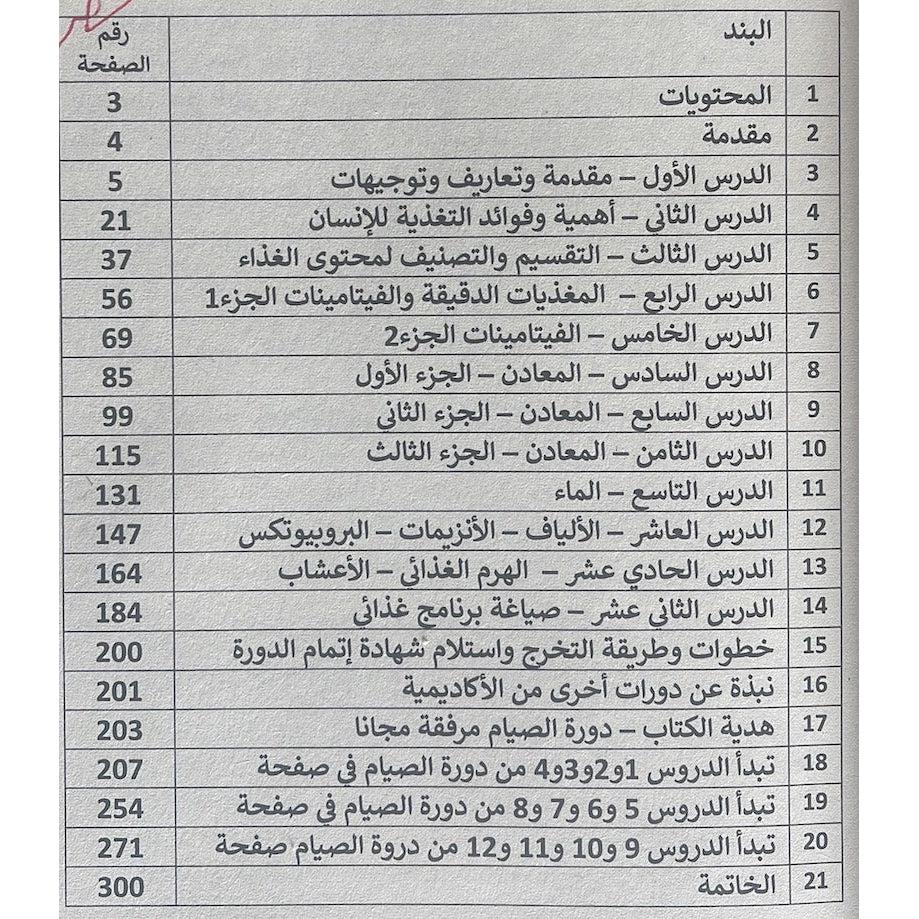 البند رقم الصفحة
1 المحتويات 3
2 مقدمة 4
3 الدرس الأول – مقدمة وتعاريف وتوجيهات 5
4 الدرس الثاني – أهمية وفوائد التغذية للإنسان 21
5 الدرس الثالث – التقسيم والتصنيف لمحتوى الغذاء 37
6 الدرس الرابع – المغذيات الدقيقة والفيتامينات الجزء1 56
7 الدرس الخامس – الفيتامينات الجزء2 69
8 الدرس السادس – المعادن – الجزء الأول 85
9 الدرس السابع – المعادن – الجزء الثاني 99
10 الدرس الثامن – المعادن – الجزء الثالث 115
11 الدرس التاسع – الماء 131
12 الدرس العاشر – الألياف – الأنزيمات – البروبيوتكس 147
13 الدرس الحادي عشر – الهرم الغذائي – الأعشاب 164
14 الدرس الثاني عشر – صياغة برنامج غذائي 184
15 خطوات وطريقة التخرج واستلام شهادة إتمام الدورة 200
16 نبذة عن دورات أخرى من الأكاديمية 201
17 هدية الكتاب – دورة الصيام مرفقة مجانا 203
18 تبدأ الدروس 1و2و3و4 من دورة الصيام في صفحة 207
19 تبدأ الدروس 5 و6 و7 و8 من دورة الصيام في صفحة 254
20 تبدأ الدروس 9 و10 و11 و12 من دروة الصيام صفحة 271
21 الخاتمة 300